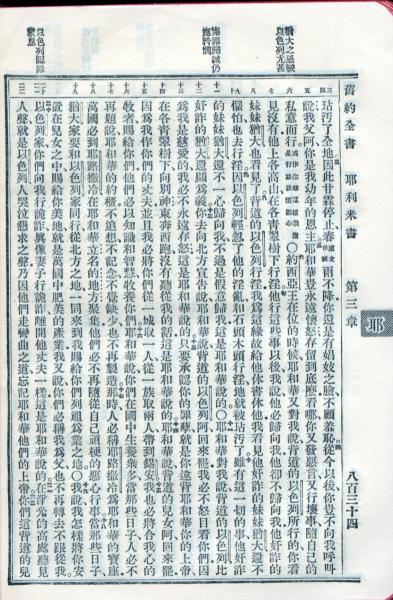 舊約全書 耶利米書 第三章 八百三十四
耶
猶大之愆較
以色列尤甚
悔罪歸誠仍
施矜憫
以色列認罪
歸服
玷汚了全地因此甘霖停止春雨不降你還是有娼妓之臉不顧羞恥從今以後你豈不向我呼叫
說我父阿你是我幼年的恩主耶和華豈永遠懷怒存留到底麼看哪你又發惡言又行壞事隨自己的
私意而行○約西亞王在位的時候耶和華又對我說背道的以色列所行的你看
見沒有他上各高山在各青翠樹下行淫他行這些事以後我說他必歸向我他卻不歸向我他奸詐的
妹妹猶大也看見了背道的以色列行淫我爲這緣故給他休書休他我看見他奸詐的妹妹猶大還不
懼怕也去行淫因以色列輕忽了他的淫亂和石頭木頭行淫地就被玷汚了雖有這一切的事他奸詐
的妹妹猶大還不一心歸向我不過是假意歸我這是耶和華說的○耶和華對我說背道的以色列比
奸詐的猶大還顯爲義你去向北方宣告說耶和華說背道的以色列阿回來罷我必不怒目看你們因
爲我是慈愛的我必不永遠存怒這是耶和華說的只要承認你的罪孽就是你違背耶和華你的上帝
在各青翠樹下向別神東奔西跑沒有聽從我的話這是耶和華說的耶和華說背道的兒女阿回來罷
因爲我作你們的丈夫並且我必將你們從一城取一人從一族取兩人帶到錫安我也必將合我心的
牧者賜給你們他們必以知識和智慧牧養你們耶和華說你們在國中生養衆多當那些日子人必不
再題說耶和華的約櫃不追想不記念不覺缺少也不再製造那時人必稱耶路撒冷爲耶和華的寶座
萬國必到耶路撒冷在耶和華立名的地方聚集他們必不再隨從自己頑梗的惡心行事當那些日子
猶大家要和以色列家同行從北方之地一同來到我賜給你們列祖爲業之地○我說我怎樣將你安
置在兒女之中賜給你美地就是萬國中肥美的產業我又說你們必稱我爲父也不再轉去不跟從我
以色列家你們向我行詭詐眞像妻子行詭詐離開他丈夫一樣這是耶和華說的在淨光的高處聽見
人聲就是以色列人哭泣懇求之聲乃因他們走彎曲之道忘記耶和華他們的上帝你們這背道的兒